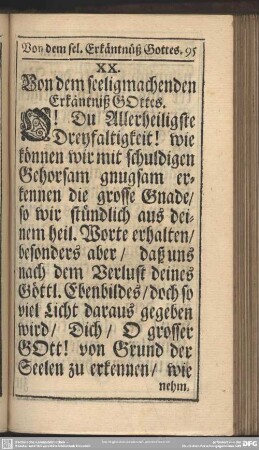 Von dem sel. Erkäntnüß Gottes. 95
XX.
Von dem seeligmachenden
Erkäntniß GOttes.
O! Du Allerheiligste
Dreyfaltigkeit! wie
können wir mit schuldigen
Gehorsam gnugsam er-
kennen die grosse Gnade/
so wir stündlich aus dei-
nem heil. Worte erhalten/
besonders aber/ daß uns
nach dem Verlust deines
Göttl. Ebenbildes/ doch so
viel Licht daraus gegeben
wird/ Dich/ O grosser
GOtt! von Grund der
Seelen zu erkennen/ wie
nehm.